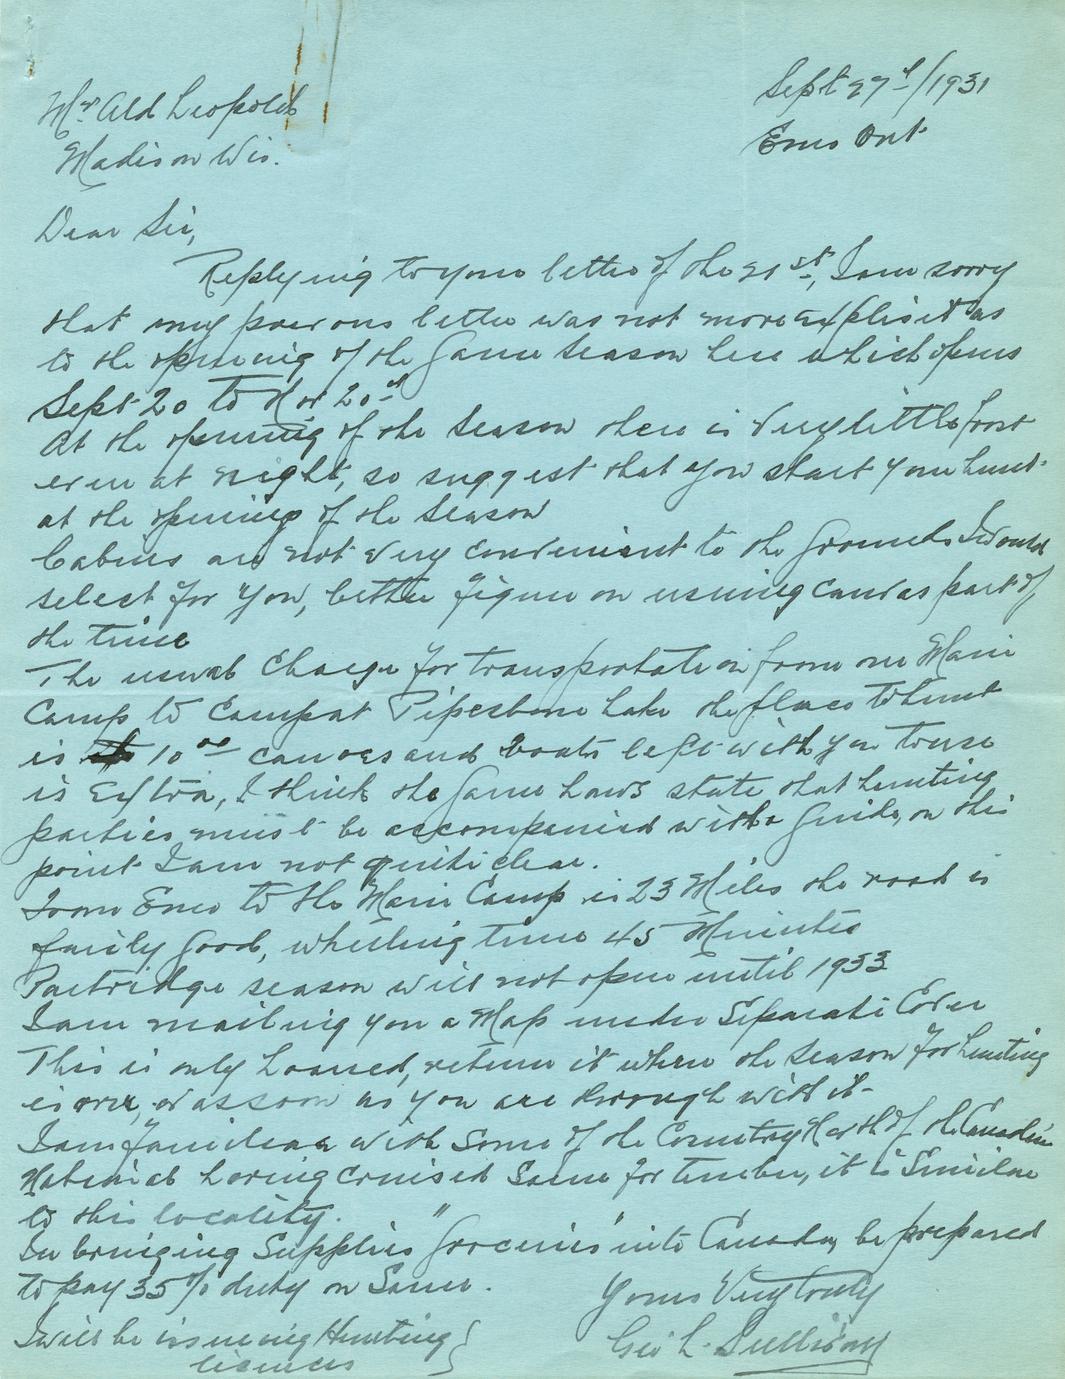 Sept 27th/1931
Emo Ont
Mr Ald Leopold
Madison Wis.
Dear Sir,
Replying to your letter of the 21st, I am sorry
that my previous letter was not more explisit as
to the opening of the Game Season here which opens
Sept 20 to Nov 20th
At the opening of the Season there is Very little frost
even at night, so suggest that you start your hunt
at the opening of the Season
Cabins are not very convenient to the Grounds I would
select for you, better figure on using canvas part of
the time
The usual Charge for transportation from our Main
Camp to Camp at Pipestone Lake the place to hunt
is 10 00 canoes and boats left with you to use
is Extra, I think the Game Laws state that hunting
parties must be accompanied with a Guide, on this
point I am not quite clear.
From Emo to the Main Camp is 23 Miles the road is
fairly Good, wheeling time 45 Minutes
Partridge season will not open until 1933
I am mailing you a Map under Separate Cover
This is only Loaned, return it when the Season for hunting
is over, or as soon as you are through with it
I am familiar with Some of the Country North of the Canadian
National having cruised Same for timber, it is Similar
to this locality.
In bringing Supplies "Groceries" into Canada, be prepared
to pay 35% duty on Same.
Yours Very truly
Geo L. Sullivan
I will be issueing Hunting
licences